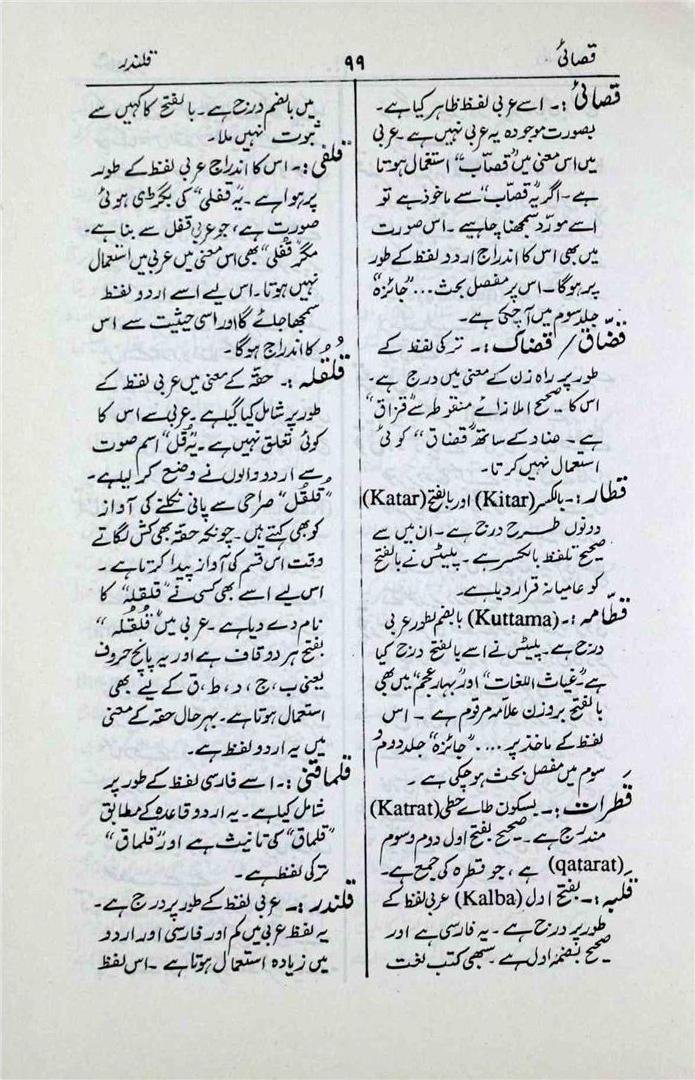 قصائی ۹۹ قلندر
قصائی :۔ اسے عربی لفظ ظاہر کیا ہے۔
بصورت موجودہ یہ عربی نہیں ہے۔ عربی
میں اس معنی میں "قصّاب" استعمال ہوتا
ہے۔ اگر یہ "قصّاب" سے ماخوذ ہے تو
اسے مورّد سمجھنا چاہیے۔ اس صورت
میں بھی اس کا اندراج اردو لفظ کے طور
پر ہوگا۔ اس پر مفصل بحث... "جائزہ"
جلد سوم میں آچکی ہے۔
قضّاق / قضاک :۔ ترکی لفظ کے
طور پر راہ زن کے معنی میں درج ہے۔
اس کا صحیح املا زائے منقوطہ سے "قزاق"
ہے۔ ضاد کے ساتھ "قضاق" کوئی
استعمال نہیں کرتا۔
قطار :۔ بالکسر (Kitar) اور بالفتح (Katar)
دونوں طرح درج ہے۔ ان میں سے
صحیح تلفظ بالکسر ہے۔ پلیٹس نے بالفتح
کو عامیانہ قرار دیا ہے۔
قطّامہ :۔ (Kuttama) بالضم بطور عربی
درج ہے۔ پلیٹس نے اسے بالفتح درج کیا
ہے۔ "غیاث اللغات" اور "بہار عجم" میں بھی
بالفتح بروزن علامہ مرقوم ہے۔ اس
لفظ کے ماخذ پر .... "جائزہ" جلد دوم و
سوم میں مفصل بحث ہوچکی ہے۔
قَطرات :۔ بسکون طائے حطی (Katrat)
مندرج ہے۔ صحیح بفتح اول دوم و سوم
(qatarat) ہے، جو قطرہ کی جمع ہے۔
قلبہ :۔ بفتح اول (Kalba) عربی لفظ کے
طور پر درج ہے۔ یہ فارسی ہے اور
صحیح بضمۂ اول ہے۔ سبھی کتب لغت
میں بالضم درج ہے۔ بالفتح کا کہیں سے
ثبوت نہیں ملا۔
قلفی :۔ اس کا اندراج عربی لفظ کے طور
پر ہوا ہے۔ یہ "قفلی" کی بگڑی ہوئی
صورت ہے، جو عربی قفل سے بنا ہے۔
مگر "قُفلی" بھی اس معنی میں عربی میں استعمال
نہیں ہوتا۔ اس لیے اسے اردو لفظ
سمجھا جائے گا اور اسی حیثیت سے اس
کا اندراج ہوگا۔
قُلقُلہ :۔ حقہ کے معنی میں عربی لفظ کے
طور پر شامل کیا گیا ہے۔ عربی سے اس کا
کوئی تعلق نہیں ہے۔ یہ "قُل" اسم صوت
سے اردو والوں نے وضع کرلیا ہے۔
"قُلقُل" صراحی سے پانی نکلنے کی آواز
کو بھی کہتے ہیں۔ چونکہ حقہ بھی کش لگاتے
وقت اس قسم کی آواز پیدا کرتا ہے۔
اس لیے اسے بھی کسی نے "قلقلہ" کا
نام دے دیا ہے۔ عربی میں "قلقلہ"
بفتح ہر دو قاف ہے اور یہ پانچ حروف
یعنی ب، ج، د، ط، ق کے لیے بھی
استعمال ہوتا ہے۔ بہرحال حقہ کے معنی
میں یہ اردو لفظ ہے۔
قلماقنی :۔ اسے فارسی لفظ کے طور پر
شامل کیا ہے۔ یہ اردو قاعدہ کے مطابق
"قلماق" کی تانیث ہے اور "قلماق"
ترکی لفظ ہے۔
قلندر :۔ عربی لفظ کے طور پر درج ہے۔
یہ لفظ عربی میں کم اور فارسی اور اردو
میں زیادہ استعمال ہوتا ہے۔ اس لفظ